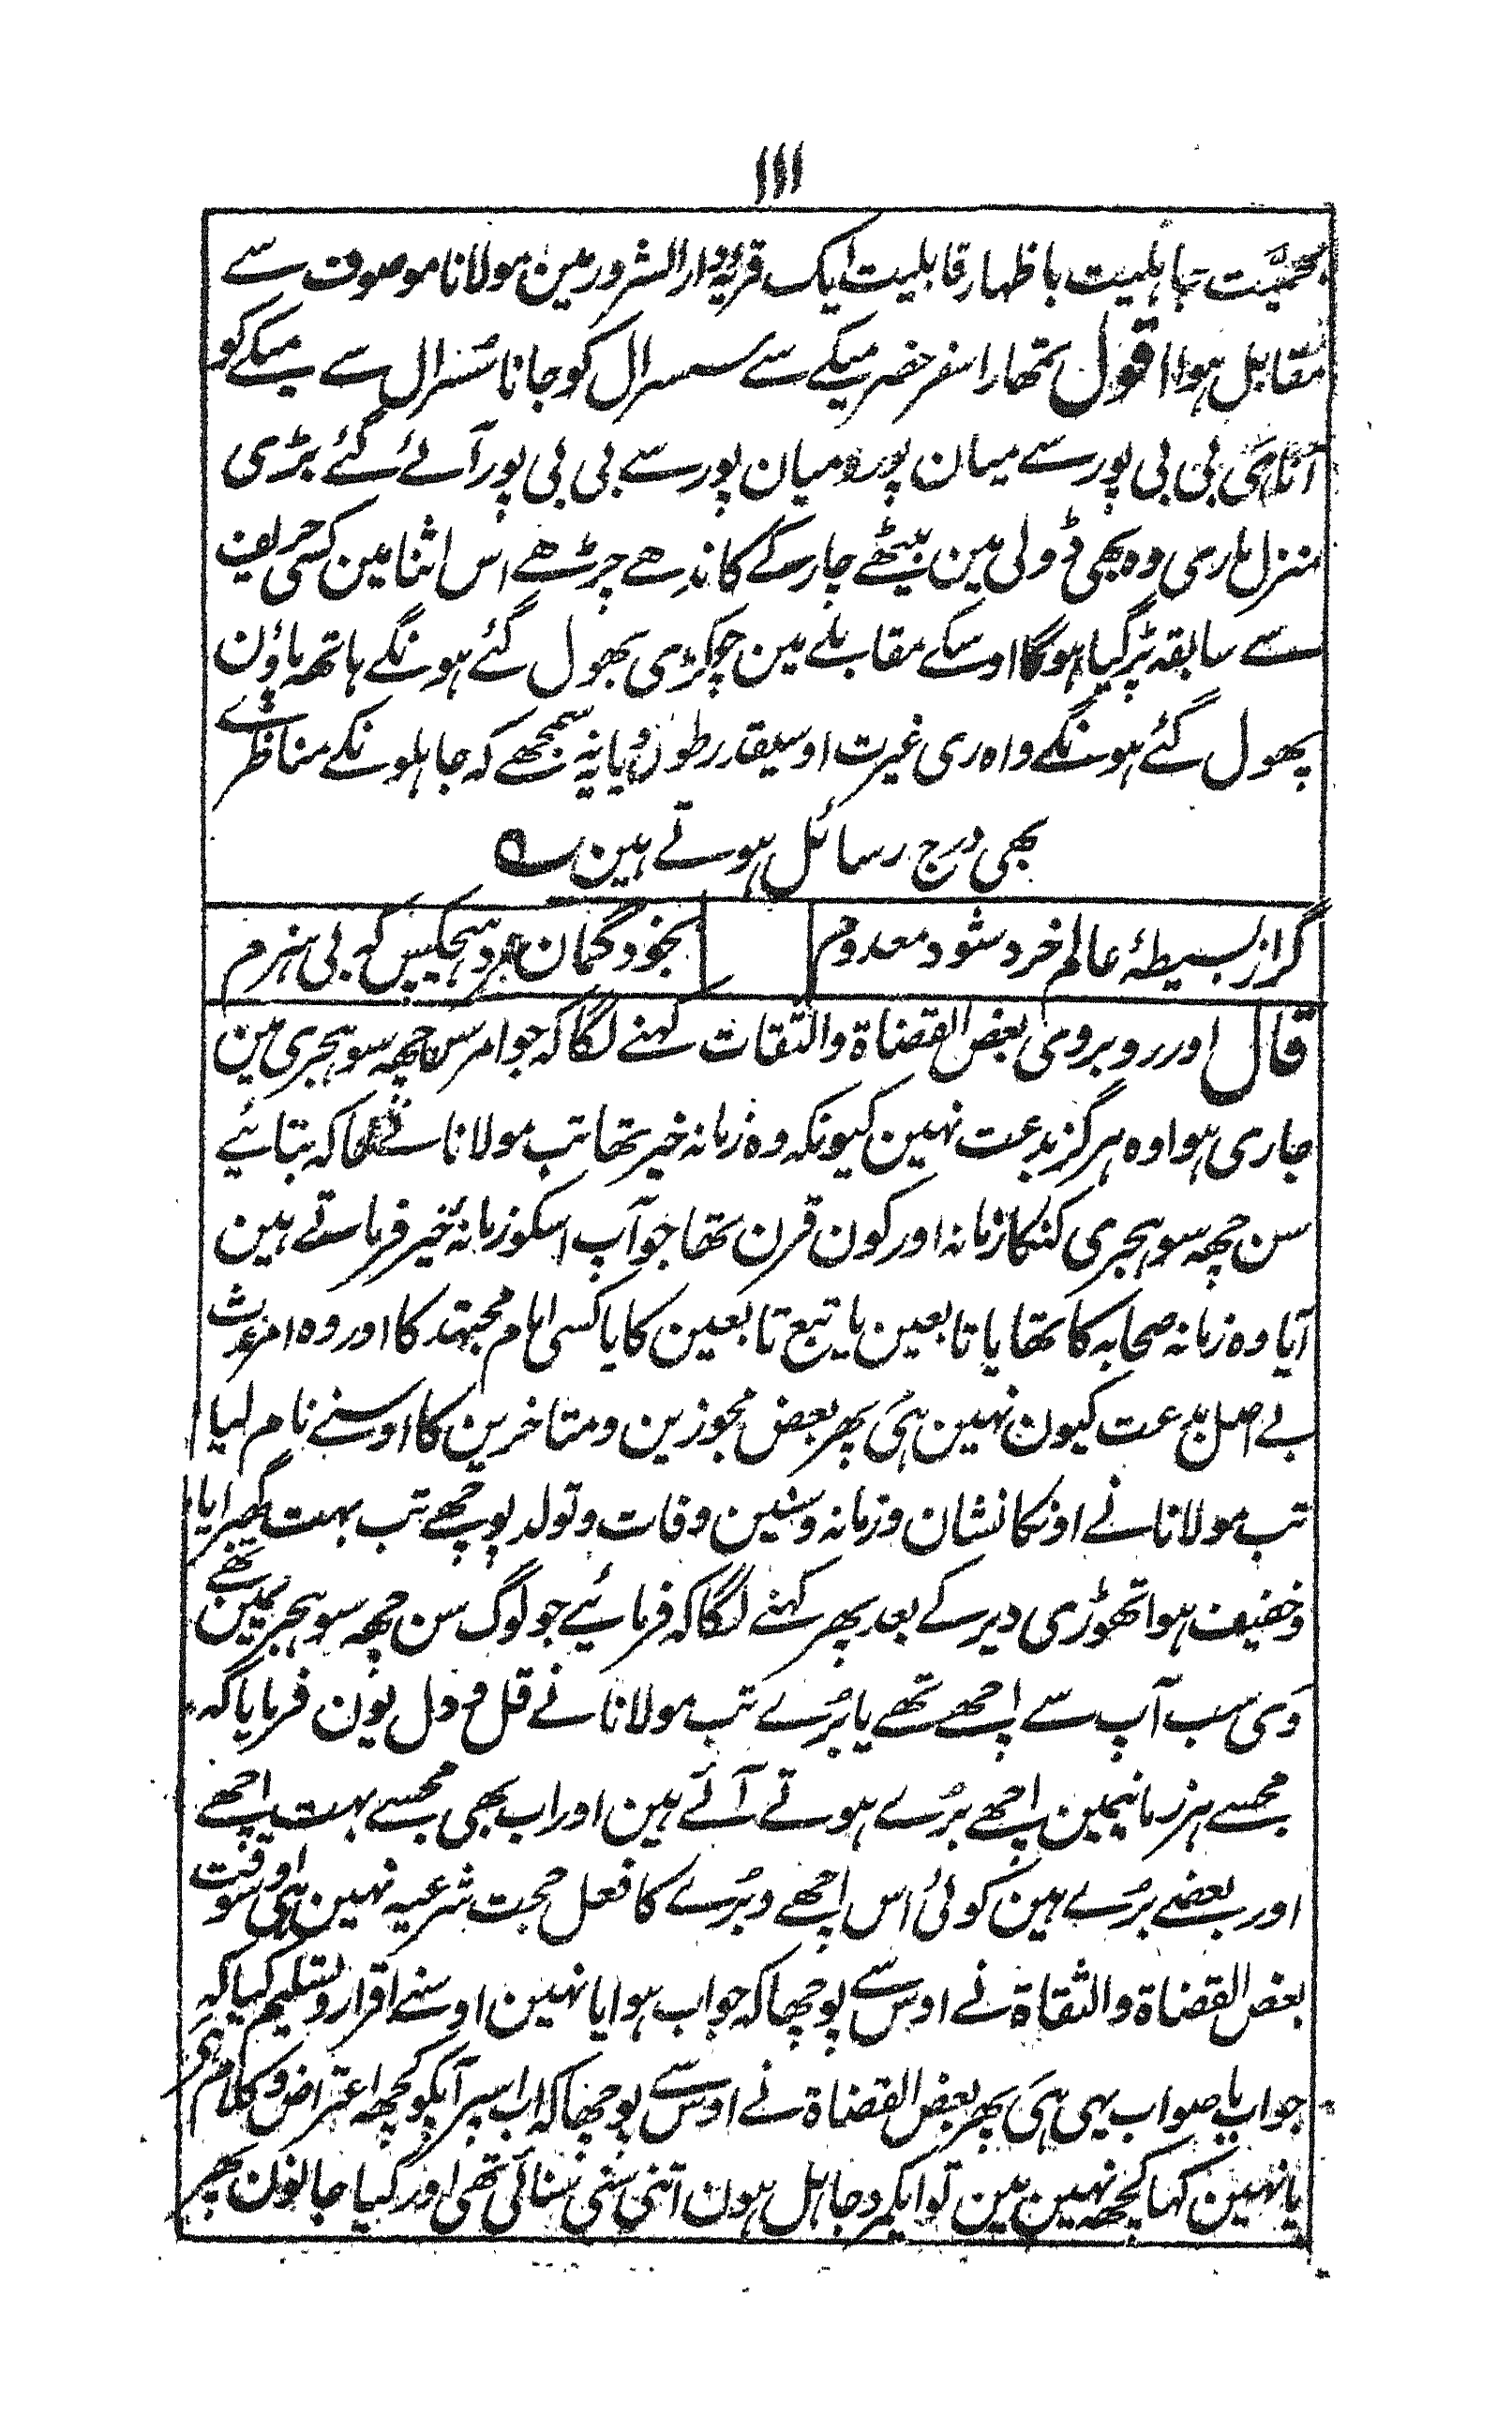 ۱۱۱
بحمیّت جاہلیت باظہار قابلیت ایک قریہ دار الشرور مین مولانا موصوف سے
مقابل ہوا اقول تمھارا سفر حضر میکے سے سسرال کو جانا سسرال سے میکے کو
آنا ہی بی بی پور سے میان پور و میان پور سے بی بی پور آئے گئے بڑی
منزل ماری وہ بھی ڈولی مین بیٹھے چار کے کاندھے چڑھے اس اثنا مین کسی حریف
سے سابقہ پڑگیا ہوگا اوسکے مقابلے مین چوکڑی بھول گئے ہونگے ہاتھ پاؤن
پھول گئے ہونگے واہ ری غیرت اوسیقدر طول دیا یہ سمجھے کہ جاہلونکے مناظرے
بھی درج رسائل ہوتے ہین ؎
گر از بسیطۂ عالم خرد شود معدوم
بخود گمان نبرد ہیچکس کہ بی ہنرم
قال اور روبروی بعض القضاة والثقات کہنے لگا کہ جو امر سن چھہ سو ہجری مین
جاری ہوا وہ ہرگز بدعت نہین کیونکہ وہ زمانہ خیر تھا تب مولانا نے کہا کہ بتائیے
سن چھہ سو ہجری کنکا زمانہ اور کون قرن تھا جو آپ اسکو زمانۂ خیر فرماتے ہین
آیا وہ زمانہ صحابہ کا تھا یا تابعین یا تبع تابعین کا یا کسی امام مجتہد کا اور وہ امر محدث
بے اصل بدعت کیون نہین ہی پھر بعض مجوزین و متاخرین کا اوسنے نام لیا
تب مولانا نے اونکا نشان و زمانہ و سنین وفات و تولد پوچھے تب بہت گھبرایا
و خفیف ہوا تھوڑی دیر کے بعد پھر کہنے لگا کہ فرمائیے جو لوگ سن چھہ سو ہجریمین تھے
وی سب آپ سے اچھے تھے یا بُرے تب مولانا نے قل و دل یون فرمایا کہ
مجھسے ہر زمانیمین اچھے بُرے ہوتے آئے ہین اور اب بھی مجھسے بہت اچھے
اور بعضے بُرے ہین کوئی اُس اچھے و بُرے کا فعل حجت شرعیہ نہین ہی اوسوقت
بعض القضاة والثقاة نے اوس سے پوچھا کہ جواب ہوا یا نہین اوسنے اقرار و تسلیم کیا کہ
جواب باصواب یہی ہی پھر بعض القضاة نے اوس سے پوچھا کہ اب اسپر آپکو کچھہ اعتراض و کلام ہی
یا نہین کہا کچھہ نہین مین تو ایک مرد جاہل ہون اتنی سنی سنائی تھی اور کیا جانون پھر